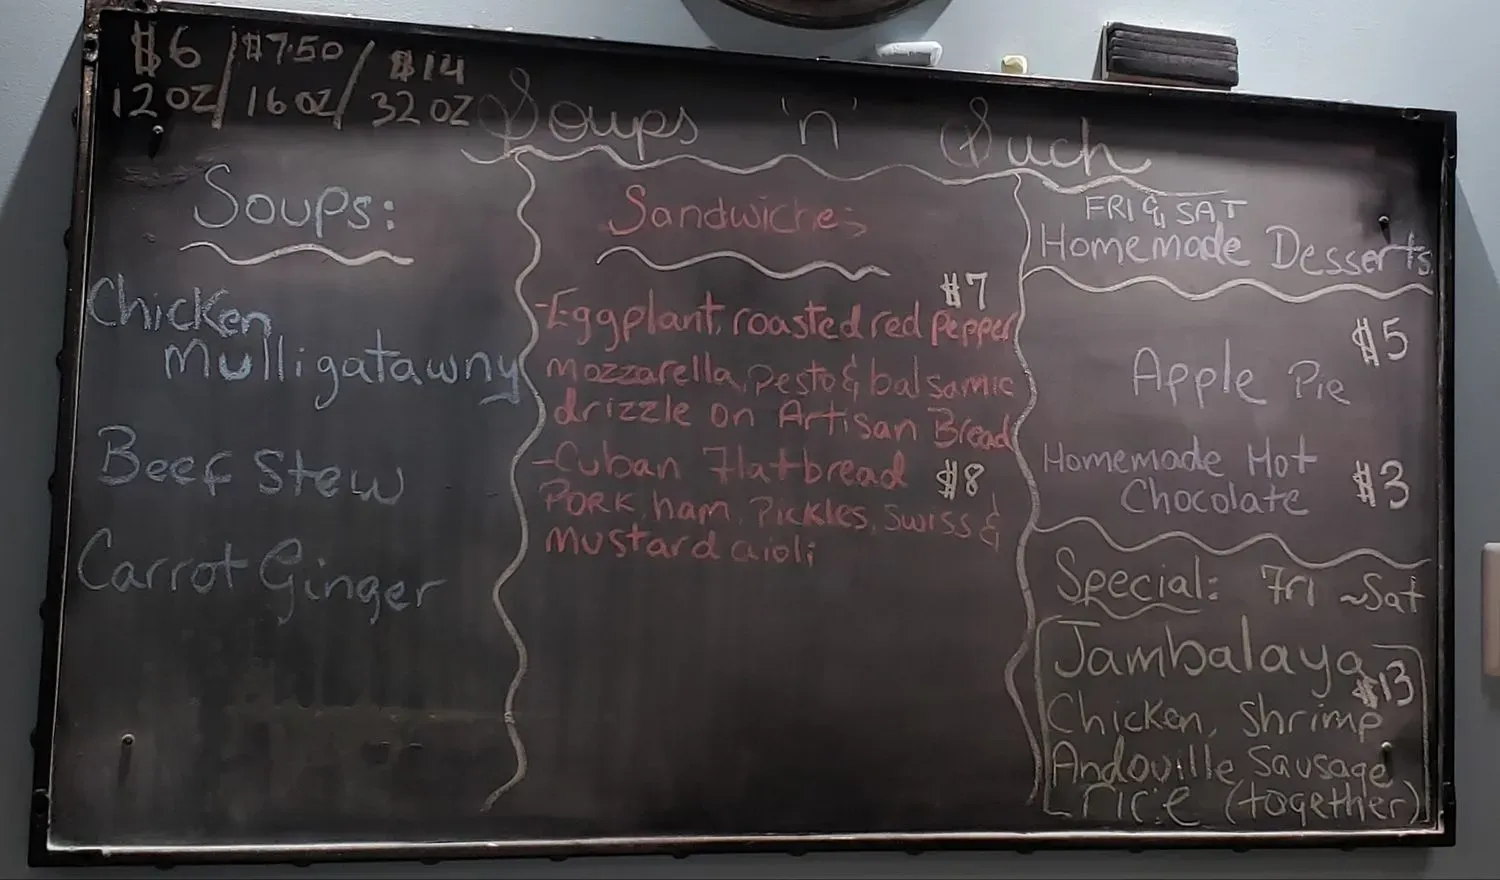 $6 / $7.50 / $14
12 oz / 16 oz / 32 oz
Soups 'n' Such
Soups:
Chicken
Mulligatawny
Beef Stew
Carrot Ginger
Sandwiches
$7
-Eggplant, roasted red pepper
mozzarella, pesto & balsamic
drizzle on Artisan Bread
-Cuban Flatbread $8
Pork, ham, Pickles, Swiss &
mustard aioli
FRI & SAT
Homemade Desserts
$5
Apple Pie
Homemade Hot
Chocolate $3
Special: Fri ~ Sat
Jambalaya
$13
Chicken, Shrimp
Andouille Sausage
rice (together)